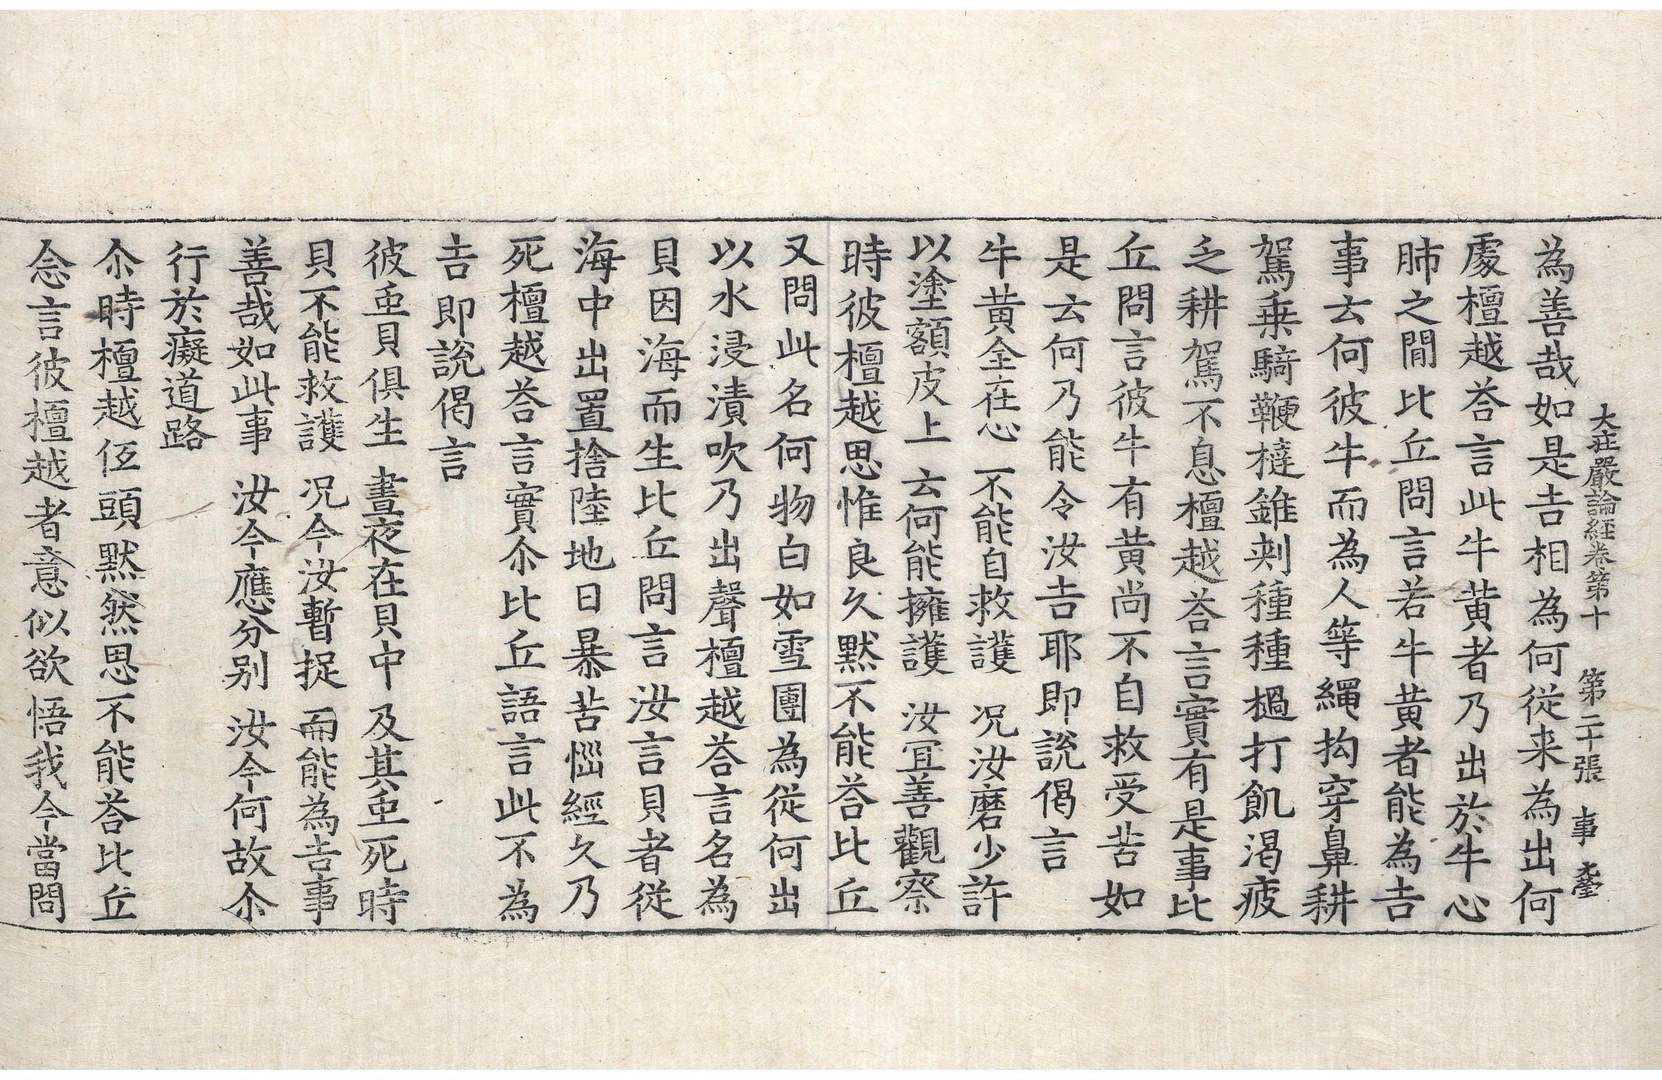 大莊嚴論經卷第十　第二十張　事
為善哉如是吉相為何從来為出何
處檀越荅言此牛黃者乃出於牛心
肺之間比丘問言若牛黃者能為吉
事云何彼牛而為人等繩拘穿鼻耕
駕乗騎鞭撻錐刺種種撾打飢渇疲
乏耕駕不息檀越荅言實有是事比
丘問言彼牛有黃尚不自救受苦如
是云何乃能令汝吉耶即說偈言
牛黃全在心　不能自救護　况汝磨少許
以塗額皮上　云何能擁護　汝冝善觀察
時彼檀越思惟良久黙不能荅比丘
又問此名何物白如雪團為從何出
以水浸漬吹乃出聲檀越荅言名為
貝因海而生比丘問言汝言貝者從
海中出置捨陸地日暴苦惱經久乃
死檀越荅言實尒比丘語言此不為
吉即說偈言
彼䖝貝俱生　晝夜在貝中　及其䖝死時
貝不能救護　况今汝暫捉　而能為吉事
善哉如此事　汝今應分别　汝今何故尒
行於癡道路
尒時檀越伍頭黙然思不能荅比丘
念言彼檀越者意似欲悟我今當問